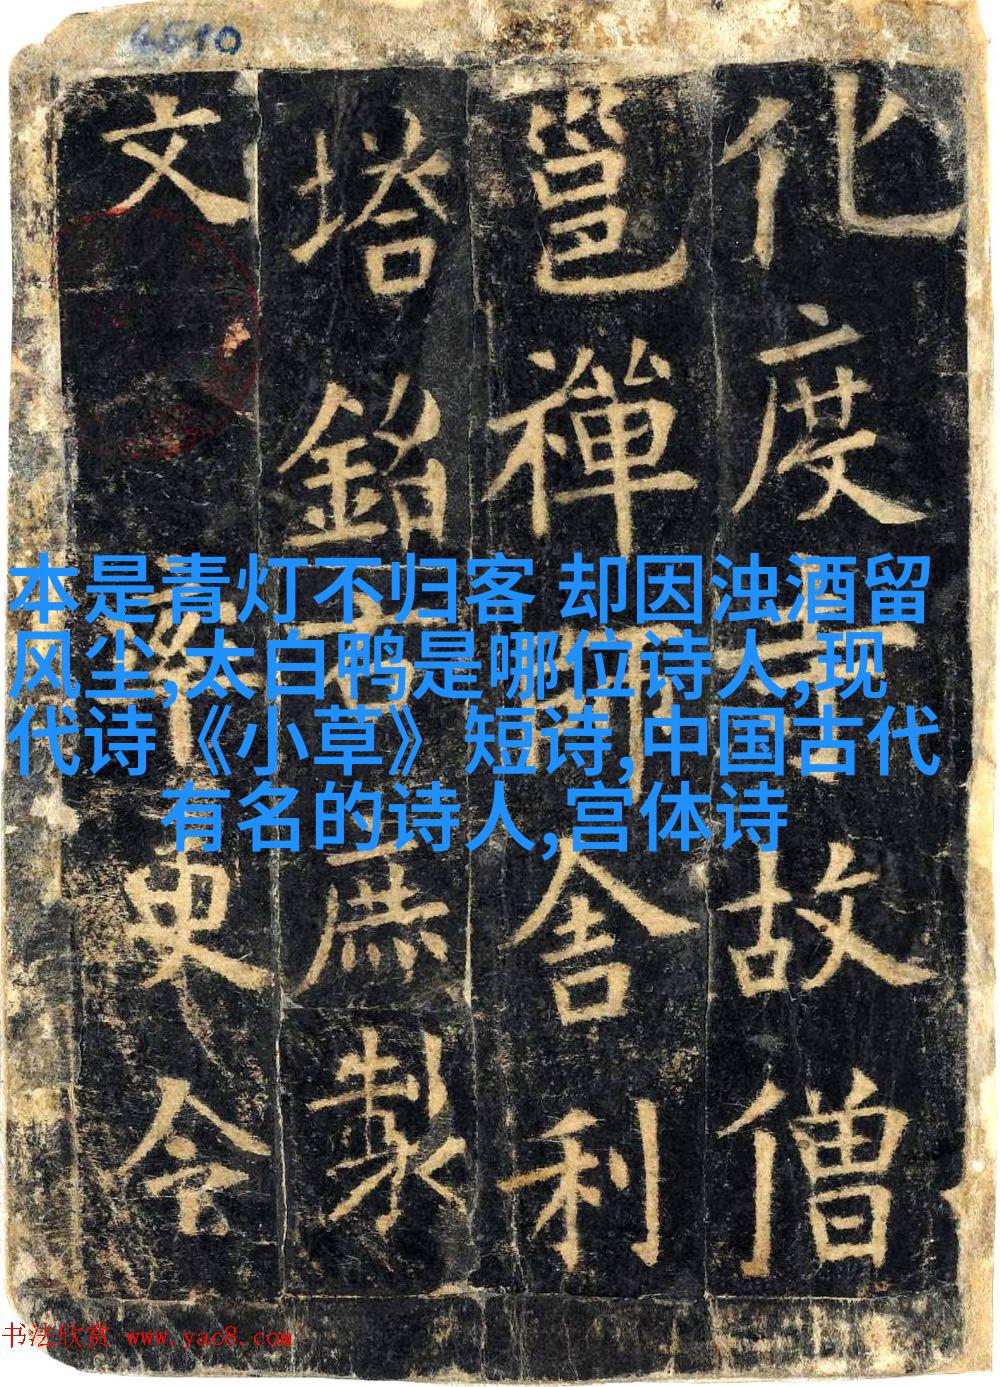 化度寺故僧
邕禪師舍利
塔銘右庶製
文
率更令
本是青灯不归客 却因浊酒留
风尘,太白鸭是哪位诗人,现
代诗《小草》短诗,中国古代
有名的诗人,宫体诗
书法欣赏 www.yac8.com